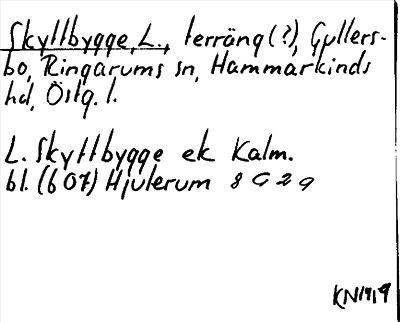 Skyttbygge, L., terräng(?), Gullers-
bo, Ringarums sn, Hammarkinds
hd, Östg. l.
L. Skyttbygge ek Kalm.
bl. (607) Hjulerum 8 G 2 g
KN1919